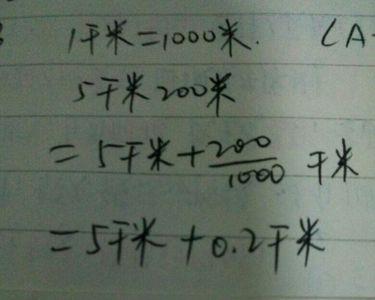 1千米=1000米. (A
5千米200米
=5千米+200/1000 千米
=5千米+0.2千米